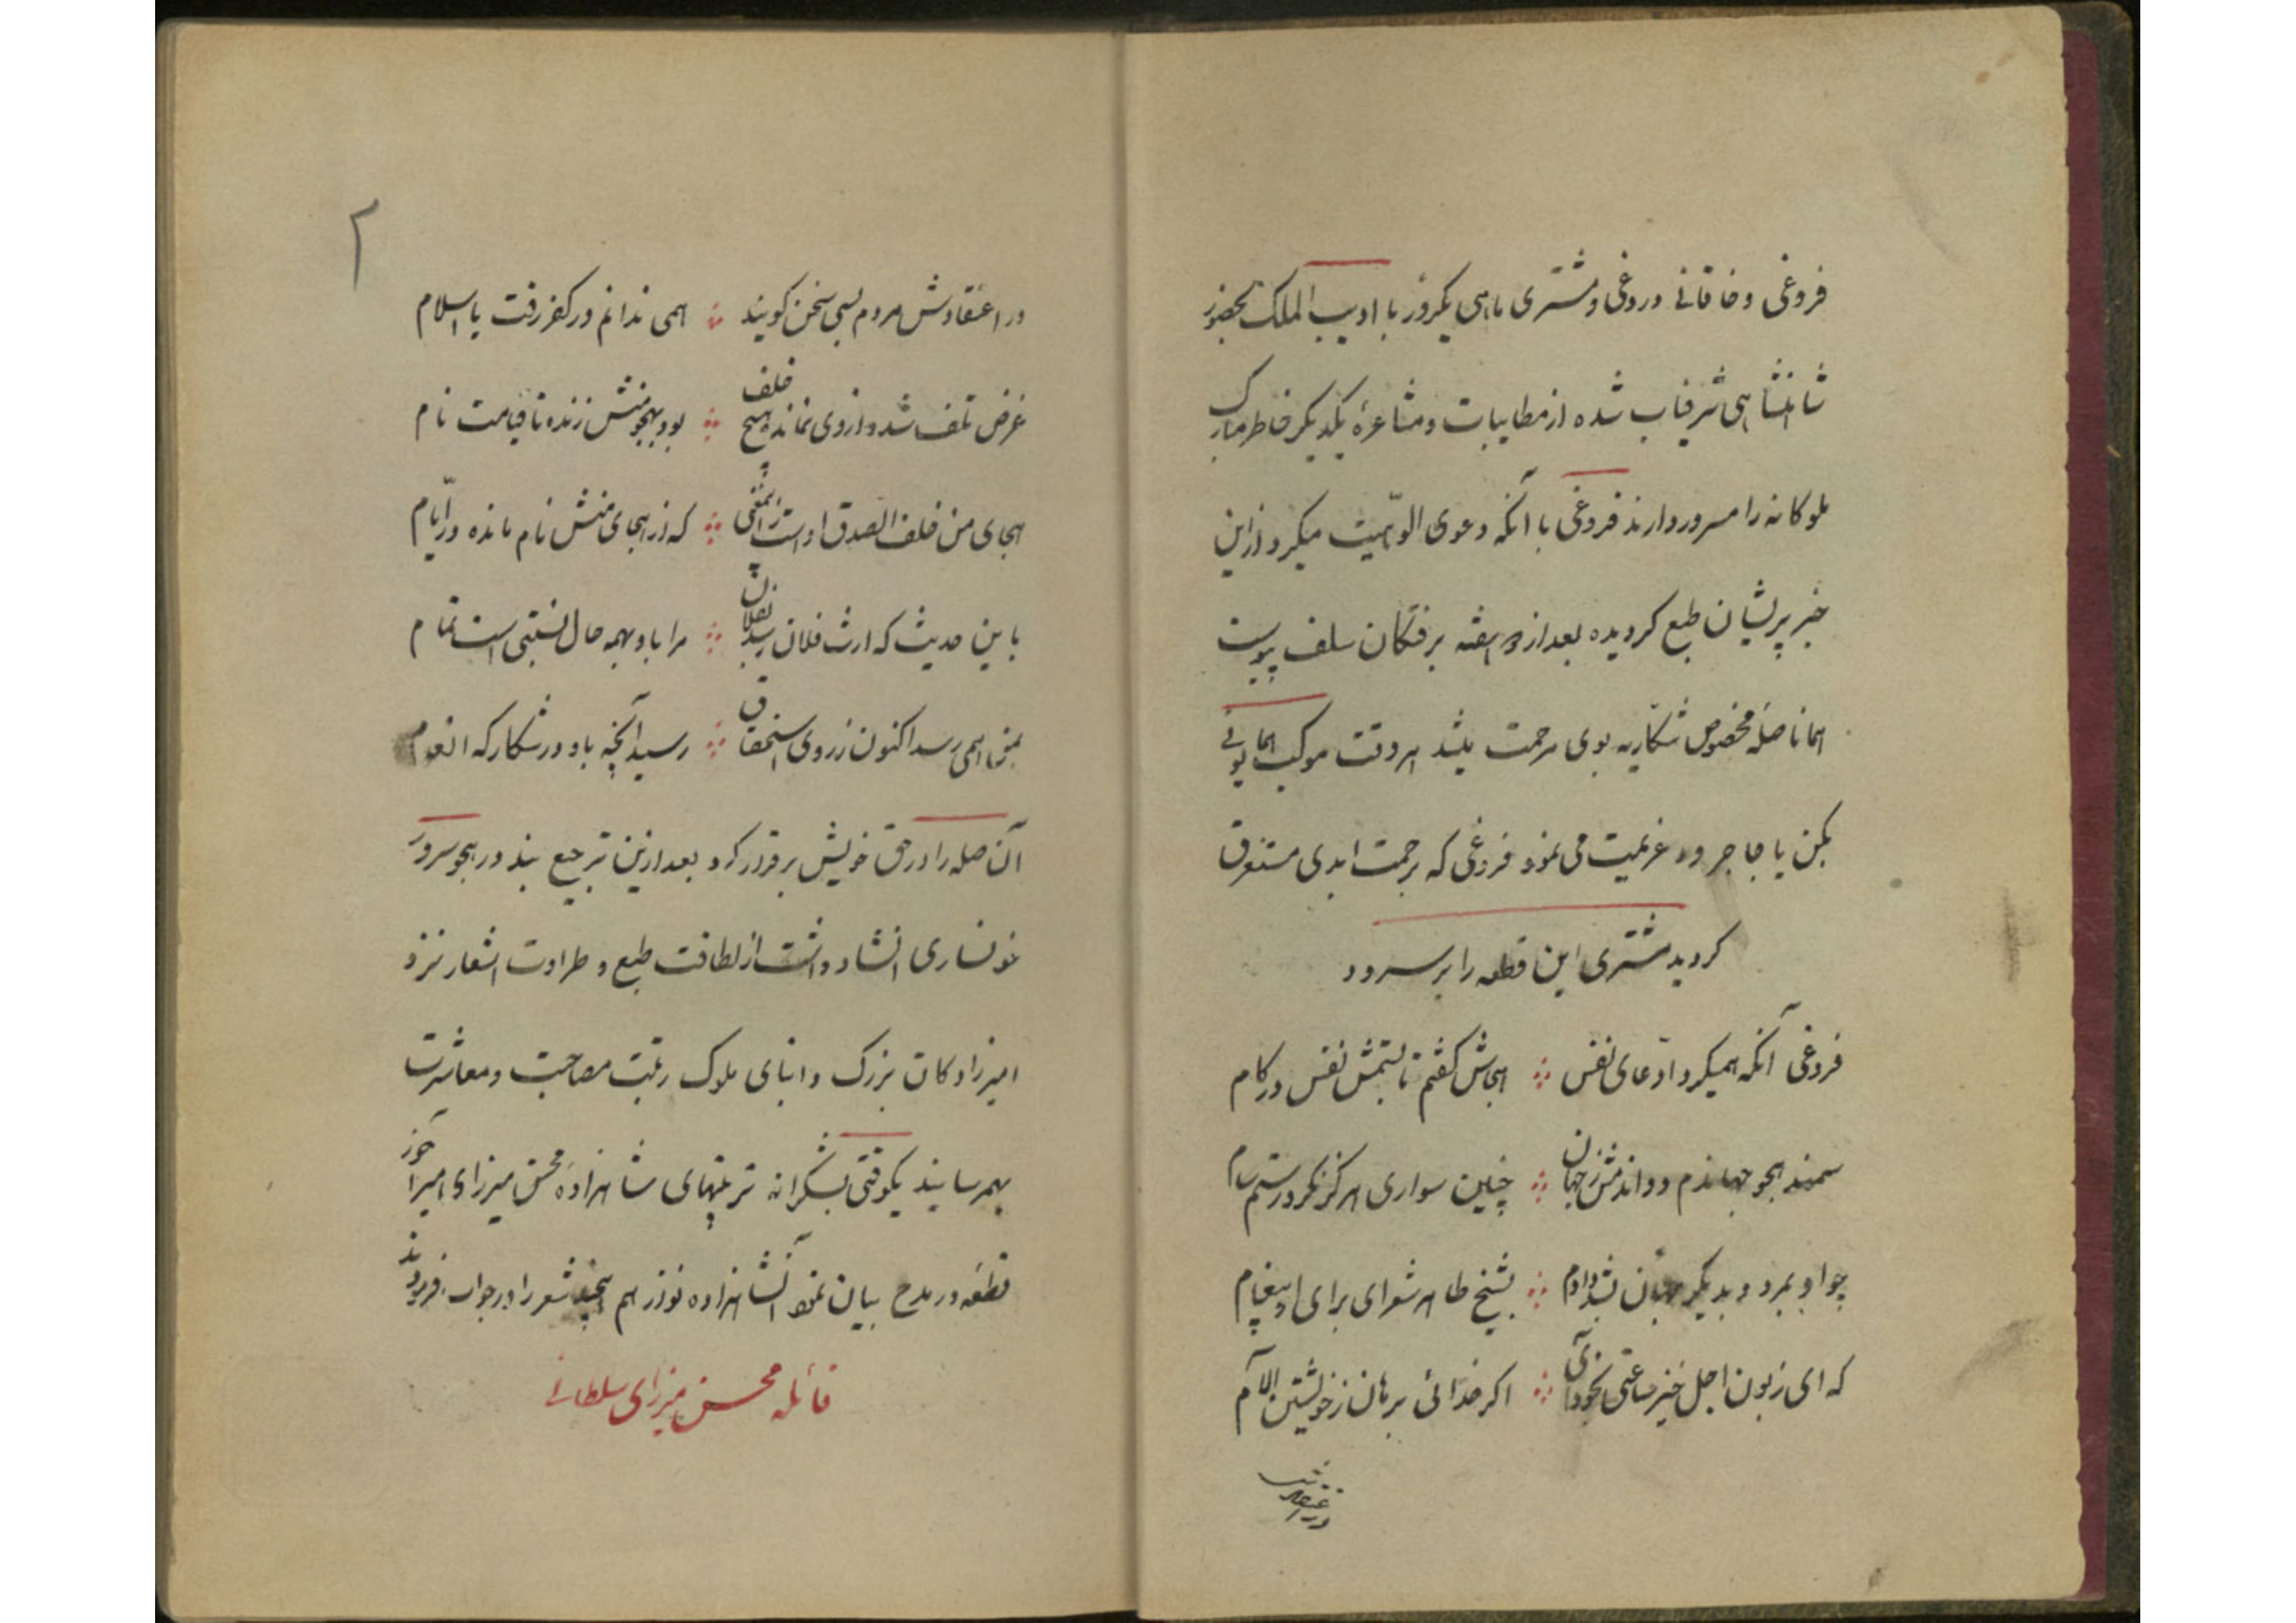 فروغی و خاقانی دروغی و مشتری ماهی یکروز با ادیب الملک بحضور
شاهنشاهی شرفیاب شده از مطایبات و مشاعرهٔ یکدیگر خاطر مبارک
ملوکانه را مسرور دارند فروغی با آنکه دعوی الوهّیت میکرد ازین
خبر پریشان طبع کردیده بعد از دو هفته برفتکان سلف پیوست
همانا صلهٔ مخصوص شکاریه بوی مرحمت میشد هر وقت موکب همایونی
بکن یا جاجرود عزیمت می نمود فروغی که برحمت ابدی مستغرق
کردید مشتری این قطعه را بر سرود
فروغی آنکه همیکرد ادّعای نفس ∴ هجاش کفتم تا بستمش نفس در کام
سمند هجو جهاندم دواندمش ز جهان ∴ چنین سواری هرکز نکرد رستم سام
چو او بمرد و بدیکر جهان شد دادم ∴ بشیخ طاهر شعرای برای او پیغام
که ای زبون اجل خیز ساعتی بخود آی ∴ اکر خدائی برهان ز خویشتن آلام
در اعتقادش
در اعتقادش مردم بسی سخن کویند ∴ همی ندانم در کفر رفت یا اسلام
غرض تلف شد و از وی نمانده هیچ خلف ∴ بود بهجو منش زنده تا قیامت نام
هجای من خلف الصدق اوست زانمعنی ∴ که از هجای منش نام مانده در ایّام
باین حدیث که ارث فلان رسد بفلان ∴ مرا باو بهمه حال نسبتی است تمام
بمن همی رسد اکنون ز روی استحقاق ∴ رسید آنچه باو در شکارکه انعام
آن صله را در حق خویش برقرار کرد بعد ازین ترجیع بند در هجو سرور
خونساری انشاد داشت از لطافت طبع و طراوت اشعار نزد
امیرزادکان بزرک و ابنای ملوک رتبت مصاحبت و معاشرت
بهمرسانید یکوقتی بشکرانه تربیتهای شاهزاده محسن میرزای امیرآخور
قطعه در مدح بیان نمود آنشاهزاده نوذر هم این چند شعر را در جواب فرمودند
قائله محسن میرزای سلطانی